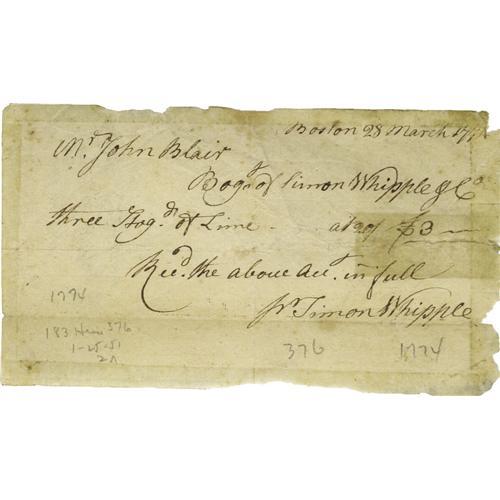 Boston 28 March 177
Mr. John Blair
Bogt. of Simon Whipple & Co
three Hogds. of Lime - at 20/ £3 —
Recd. the above Acct. in full
pr. Simon Whipple
1774
183 376
1-25-51
376 1774